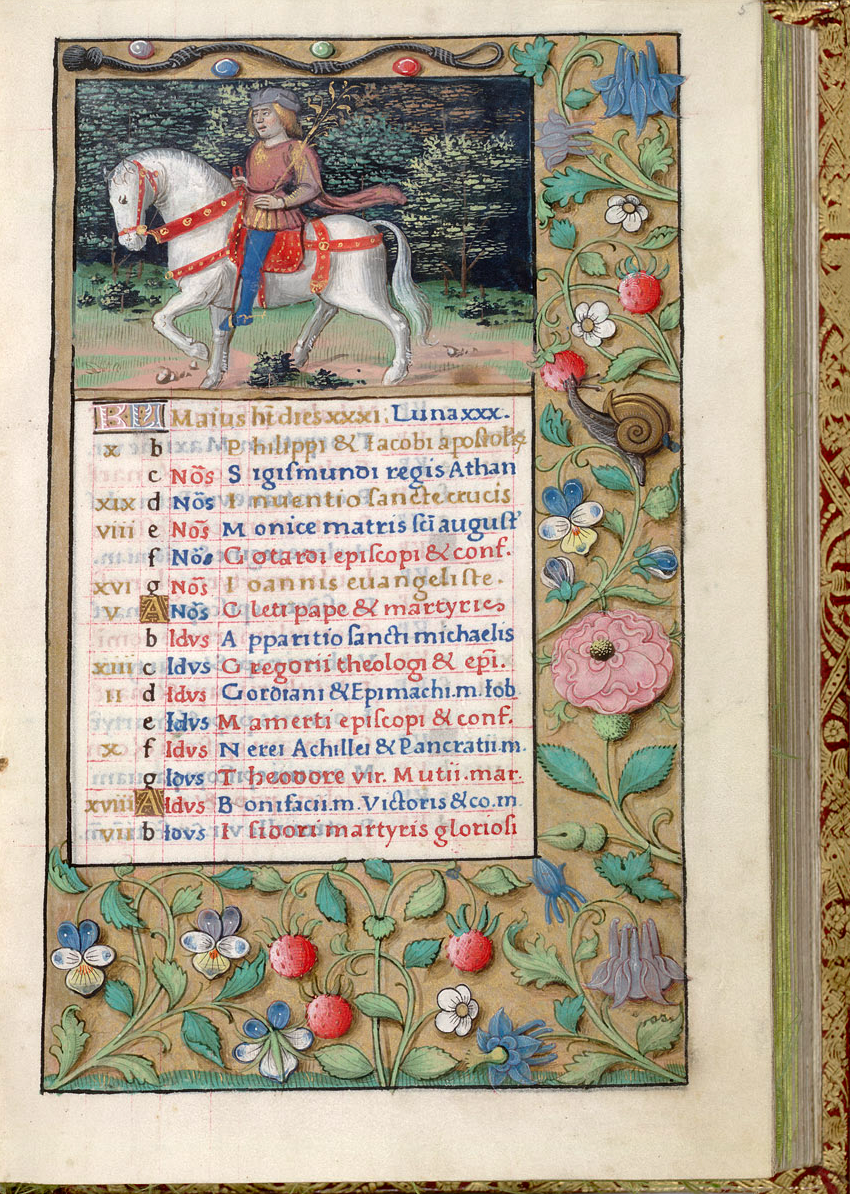 KL Maius hẽ dies xxxi. Luna xxx.
x b Philippi & Iacobi apostolꝝ
c Nõs Sigismundi regis Athan
xix d Nõs Inuentio sancte crucis
viii e Nõs Monice matris scĩ august
f Nõs Gotardi episcopi & conf.
xvi g Nõs Ioannis euangeliste.
v A Nõs Cleti pape & martyris
b Idvs Apparitio sancti michaelis
xiii c Idvs Gregorii theologi & epĩ.
ii d Idvs Gordiani & Epimachi.m.Iob
e Idvs Mamerti episcopi & conf.
x f Idvs Nerei Achillei & Pancratii.m.
g Idvs Theodore vir. Mutii.mar.
xviii A Idvs Bonifacii.m. Victoris & co.m
vii b Idvs Isidori martyris gloriosi